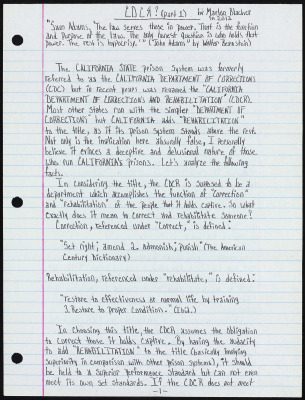 CDCR? (part 1) by Marlon Blacher
in 2012
"John Adams. "The law serves those in power. That is the function
and purpose of the law. The only honest question is who holds that
power. The rest is hypocrisy." ("John Adams" by Walter Bernstein)
The CALIFORNIA STATE prison system was formerly
referred to as the CALIFORNIA DEPARTMENT OF CORRECTIONS
(CDC) but in recent years was renamed the "CALIFORNIA
DEPARTMENT OF CORRECTIONS AND REHABILITATION" (CDCR).
Most other states run with the simpler "DEPARTMENT OF
CORRECTIONS" but CALIFORNIA adds "REHABILITATION"
to the title, as if its prison system stands above the rest.
Not only is the implication here absurdly false, I personally
believe it evinces a deceptive and delusional nature of those
who run CALIFORNIA's prisons. Let's analyze the following
facts.
In considering the title, the CDCR is supposed to be a
department which accomplishes the function of "correction"
and "rehabilitation" of the people that it holds captive. So what
exactly does it mean to correct and rehabilitate someone?
Correction, referenced under "correct," is defined:
"Set right; amend 2. admonish; punish" (The American
Century Dictionary)
Rehabilitation, referenced under "rehabilitate," is defined:
"restore to effectiveness or normal life by training
3. restore to proper condition." (Ibid.)
In choosing this title, the CDCR assumes the obligation
to correct those it holds captive. By having the audacity
to add "REHABILITATION" to the title (basically implying
superiority in comparison with other prison systems), it should
be held to a superior performance standard but can not even
meet its own set standards. If the CDCR does not meet
-1-